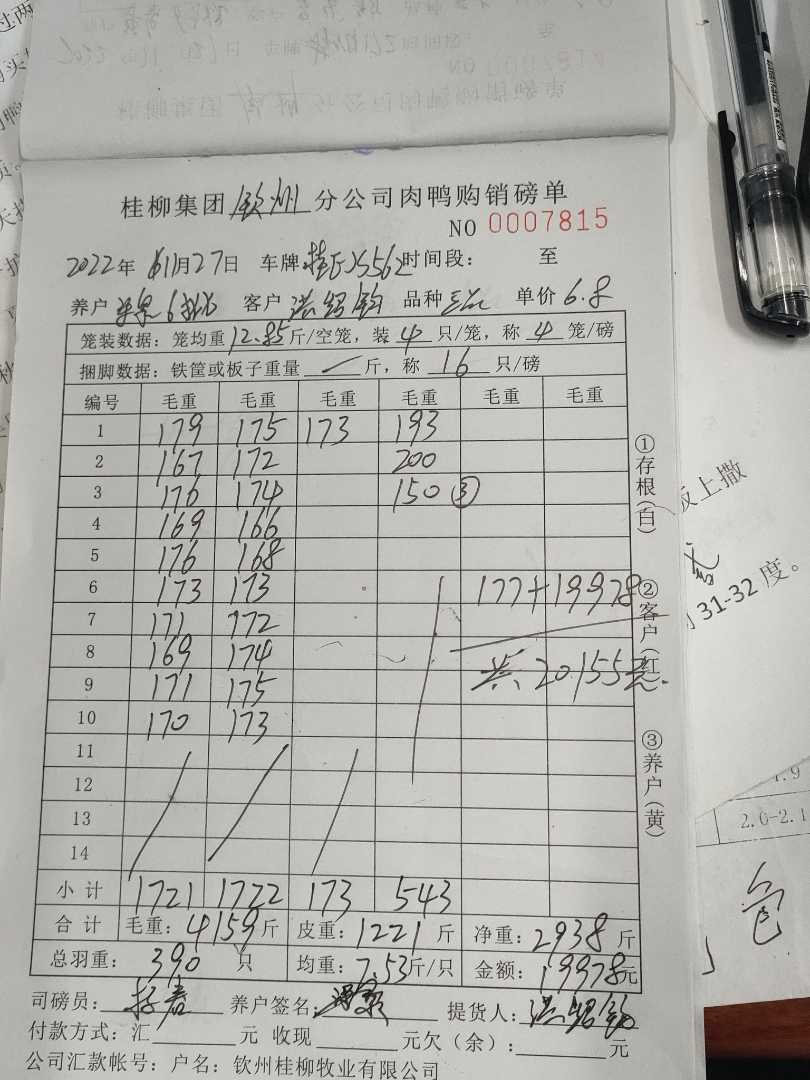 桂柳集团钦州分公司肉鸭购销磅单
NO 0007815
2022年11月27日 车牌 时间段： 至
养户 客户 洪绍钧 品种 单价 6.8
笼装数据：笼均重12.85斤/空笼，装4只/笼，称4笼/磅
捆脚数据：铁筐或板子重量 / 斤，称16只/磅
编号 毛重 毛重 毛重 毛重 毛重 毛重
1 179 175 173 193
2 167 172 200
3 176 174 150 ③
4 169 166
5 176 168
6 173 173 177+19978
7 171 172
8 169 174 共20155元.
9 171 175
10 170 173
11
12
13
14
小计 1721 1722 173 543
合计 毛重：4159斤 皮重：1221斤 净重：2938斤
总羽重：390只 均重：7.53斤/只 金额：19978元
司磅员： 养户签名： 提货人：洪绍钧
付款方式：汇 元 收现 元欠（余）： 元
公司汇款帐号：户名：钦州桂柳牧业有限公司
①存根（白）
②客户（红）
③养户（黄）
板上撒
31-32 度。
2.0-2.1